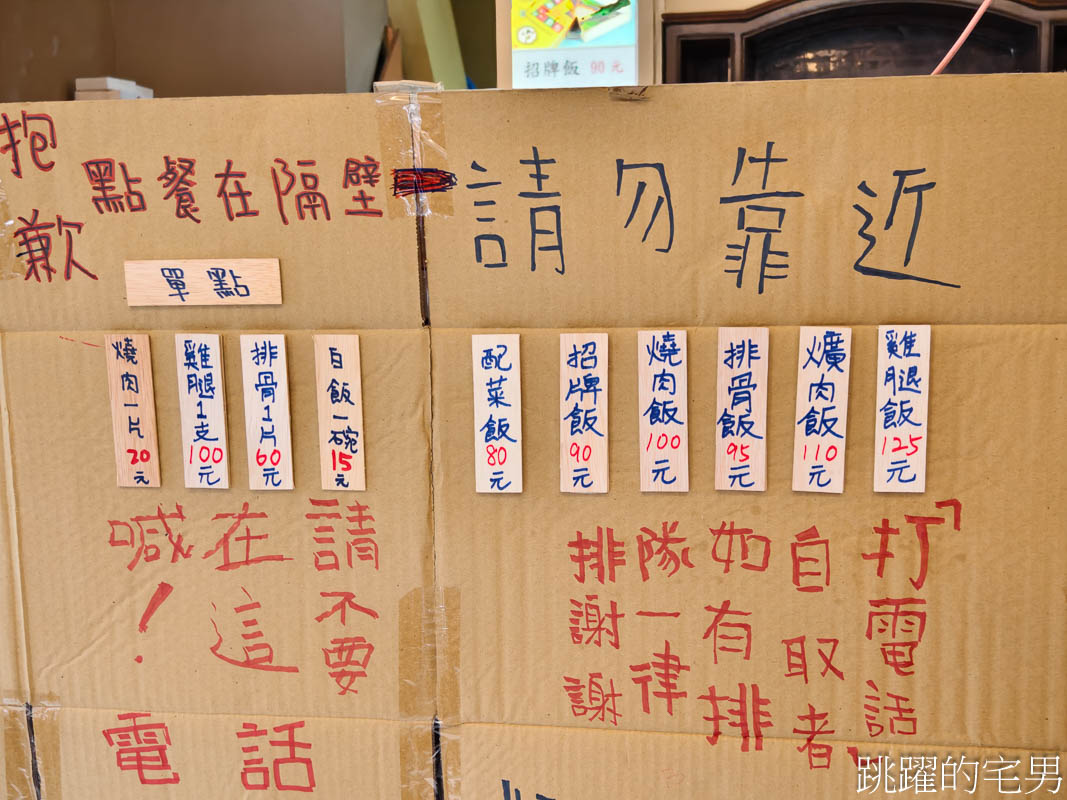 招牌飯 90元
抱歉
點餐在隔壁
請勿靠近
單點
燒肉一片20元
雞腿1支100元
排骨1片60元
白飯一碗15元
配菜飯80元
招牌飯90元
燒肉飯100元
排骨飯95元
爌肉飯110元
雞腿飯125元
請不要
在這
喊！
打電話
自取者
如有排
隊一律
排謝謝
電話
跳躍的宅男